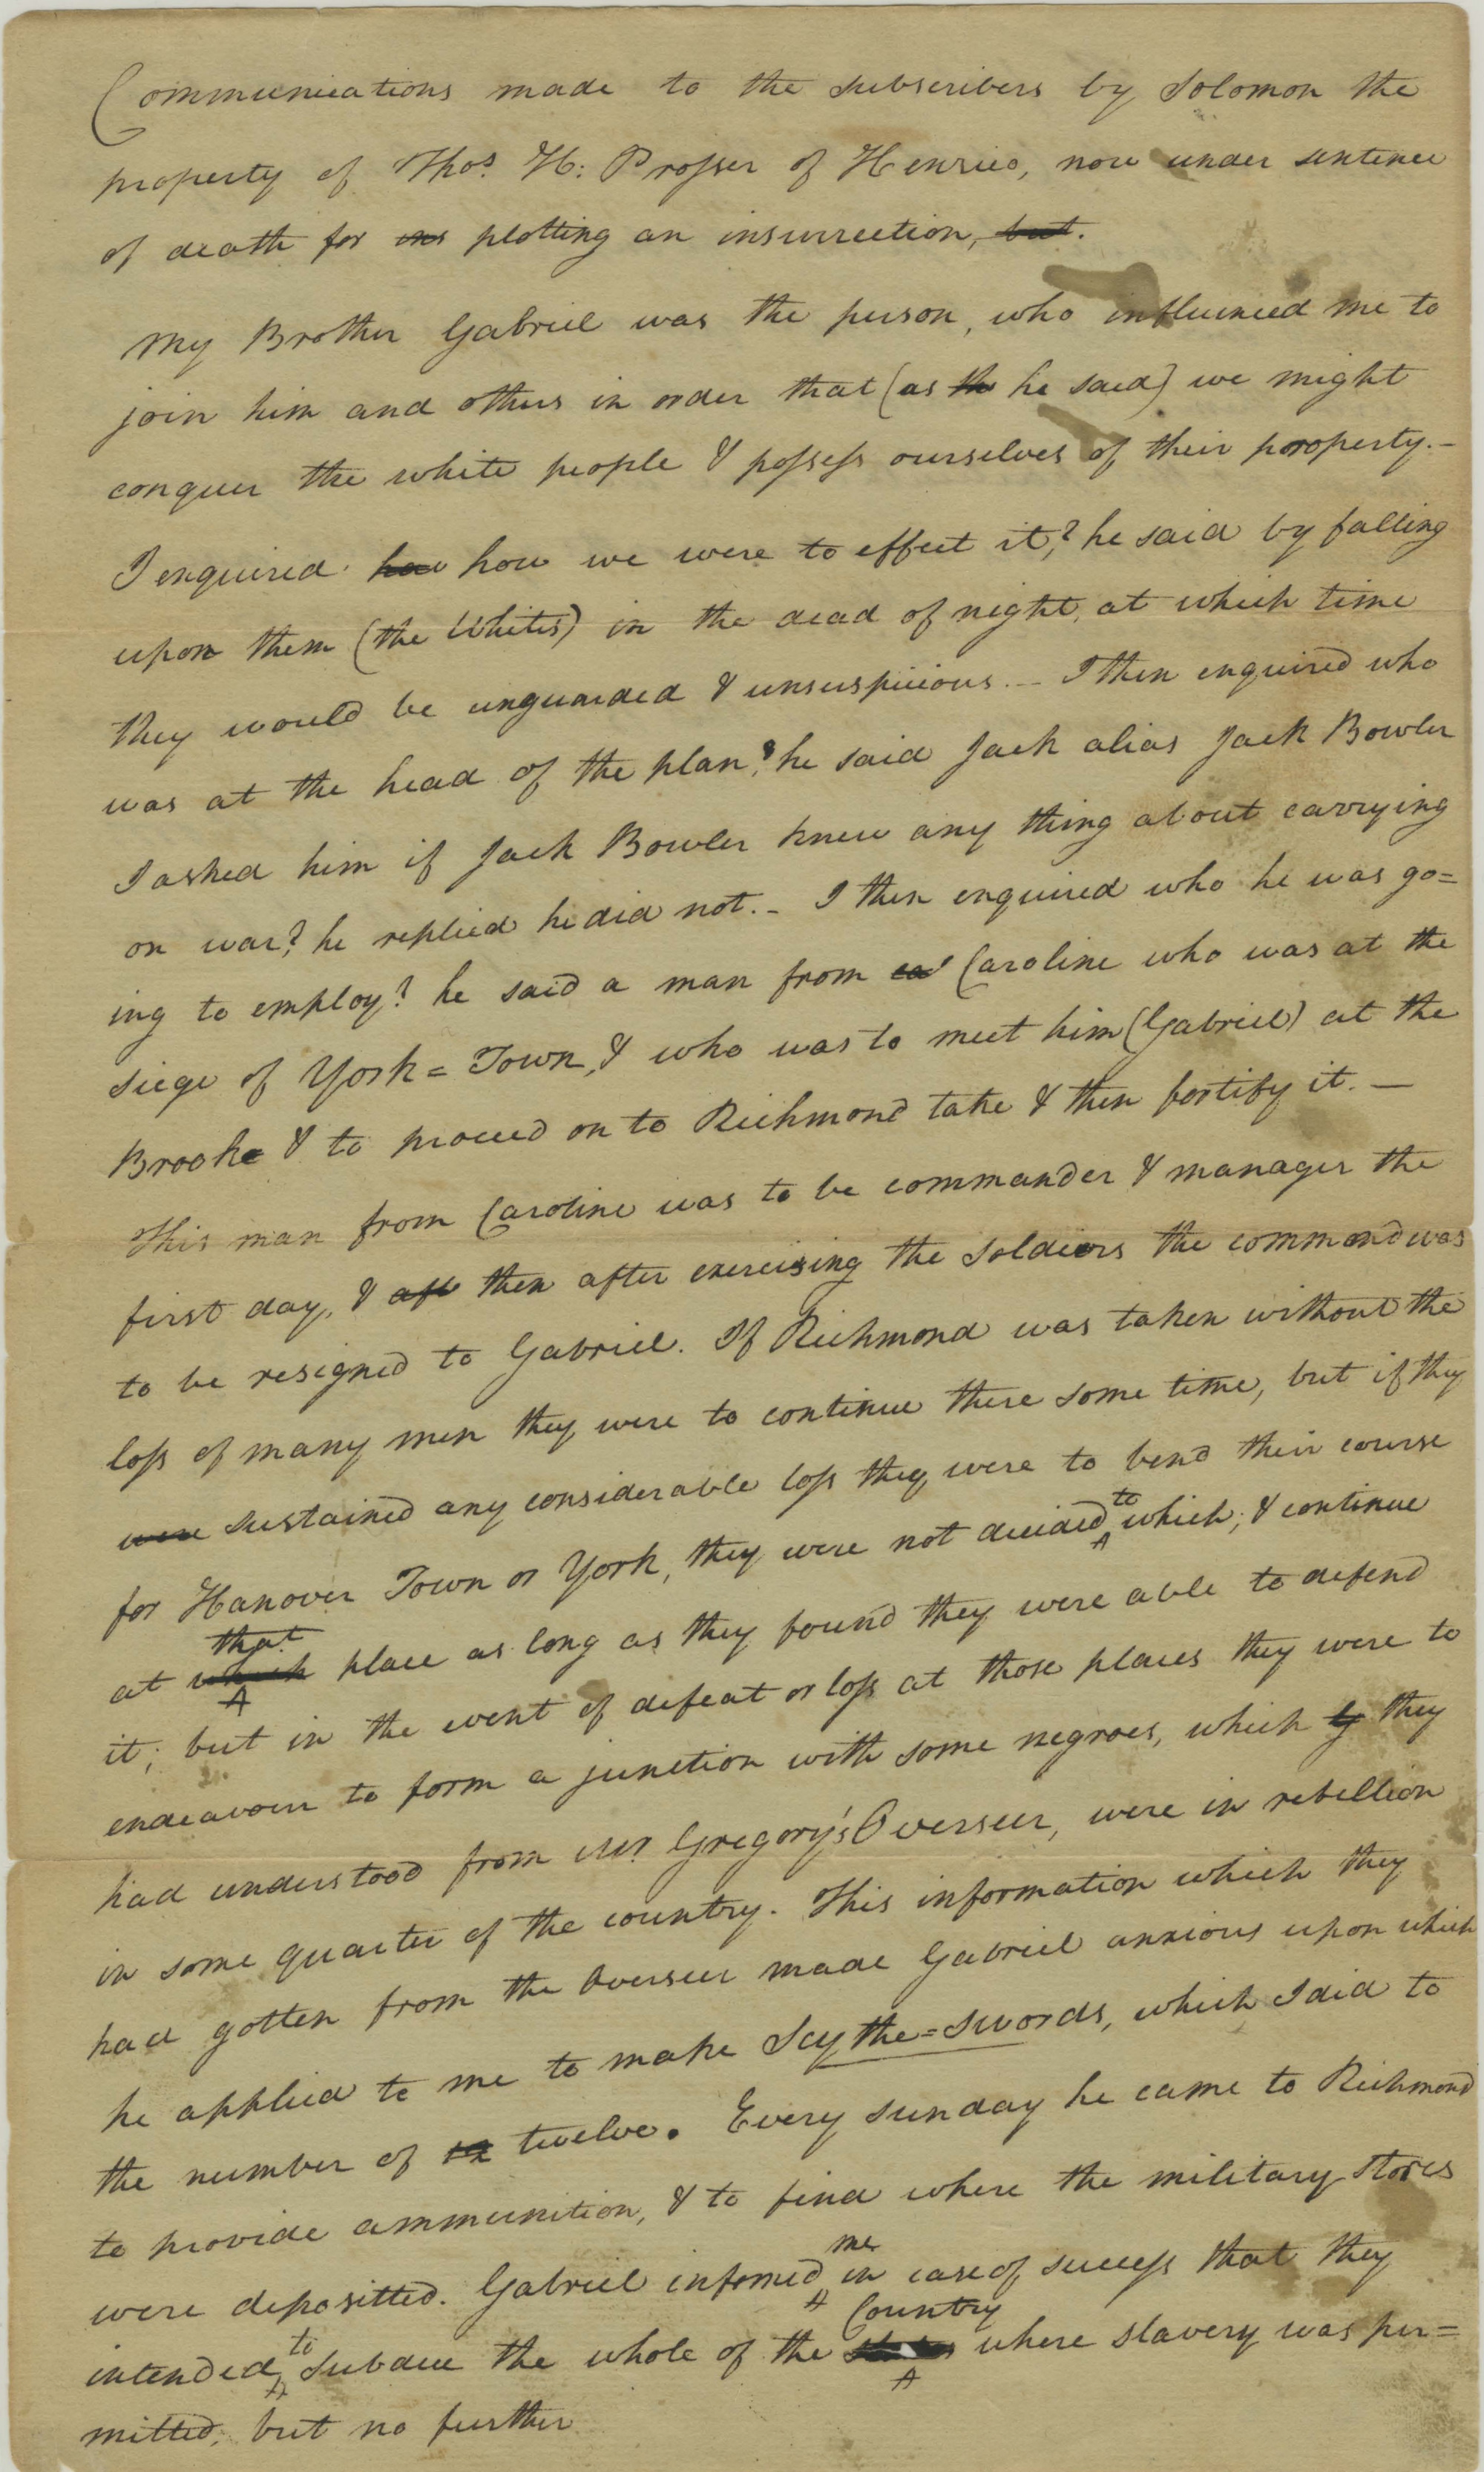 Communications made to the subscribers by Solomon the
property of Thos. H: Prosser of Henrico, now under sentence
of death for ins plotting an insurrection, but.
My Brother Gabriel was the person, who influenced me to
join him and others in order that (as th he said) we might
conquer the white people & possess ourselves of their property.–
I enquired how how we were to effect it,? he said by falling
upon them (the Whites) in the dead of night, at which time
they would be unguarded & unsuspicious.– I then enquired who
was at the head of the plan? he said Jack alias Jack Bowler
I asked him if Jack Bowler knew any thing about carrying
on war? he replied he did not.– I then enquired who he was go=
ing to employ? he said a man from ca Caroline who was at the
siege of York=Town, & who was to meet him (Gabriel) at the
Brooke & to proceed on to Richmond take & then fortify it.—
This man from Caroline was to be commander & manager the
first day, & aft then after exercising the soldiers the command was
to be resigned to Gabriel. If Richmond was taken without the
loss of many men they were to continue there some time, but if they
were sustained any considerable loss they were to bend their course
for Hanover Town or York, they were not decided to which; & continue
at which that place as long as they found they were able to defend
it; but in the event of defeat or loss at those places they were to
endeavour to form a junction with some negroes, which they
had understood from Mr Gregory's Overseer, were in rebellion
in some quarter of the country. This information which they
had gotten from the Overseer made Gabriel anxious upon which
he applied to me to make Scythe=Swords, which I did to
the number of twelve. Every sunday he came to Richmond
to provide ammunition, & to find where the military stores
were depositted. Gabriel informed me in case of success that they
intended to subdue the whole of the states Country where slavery was per=
mitted, but no further